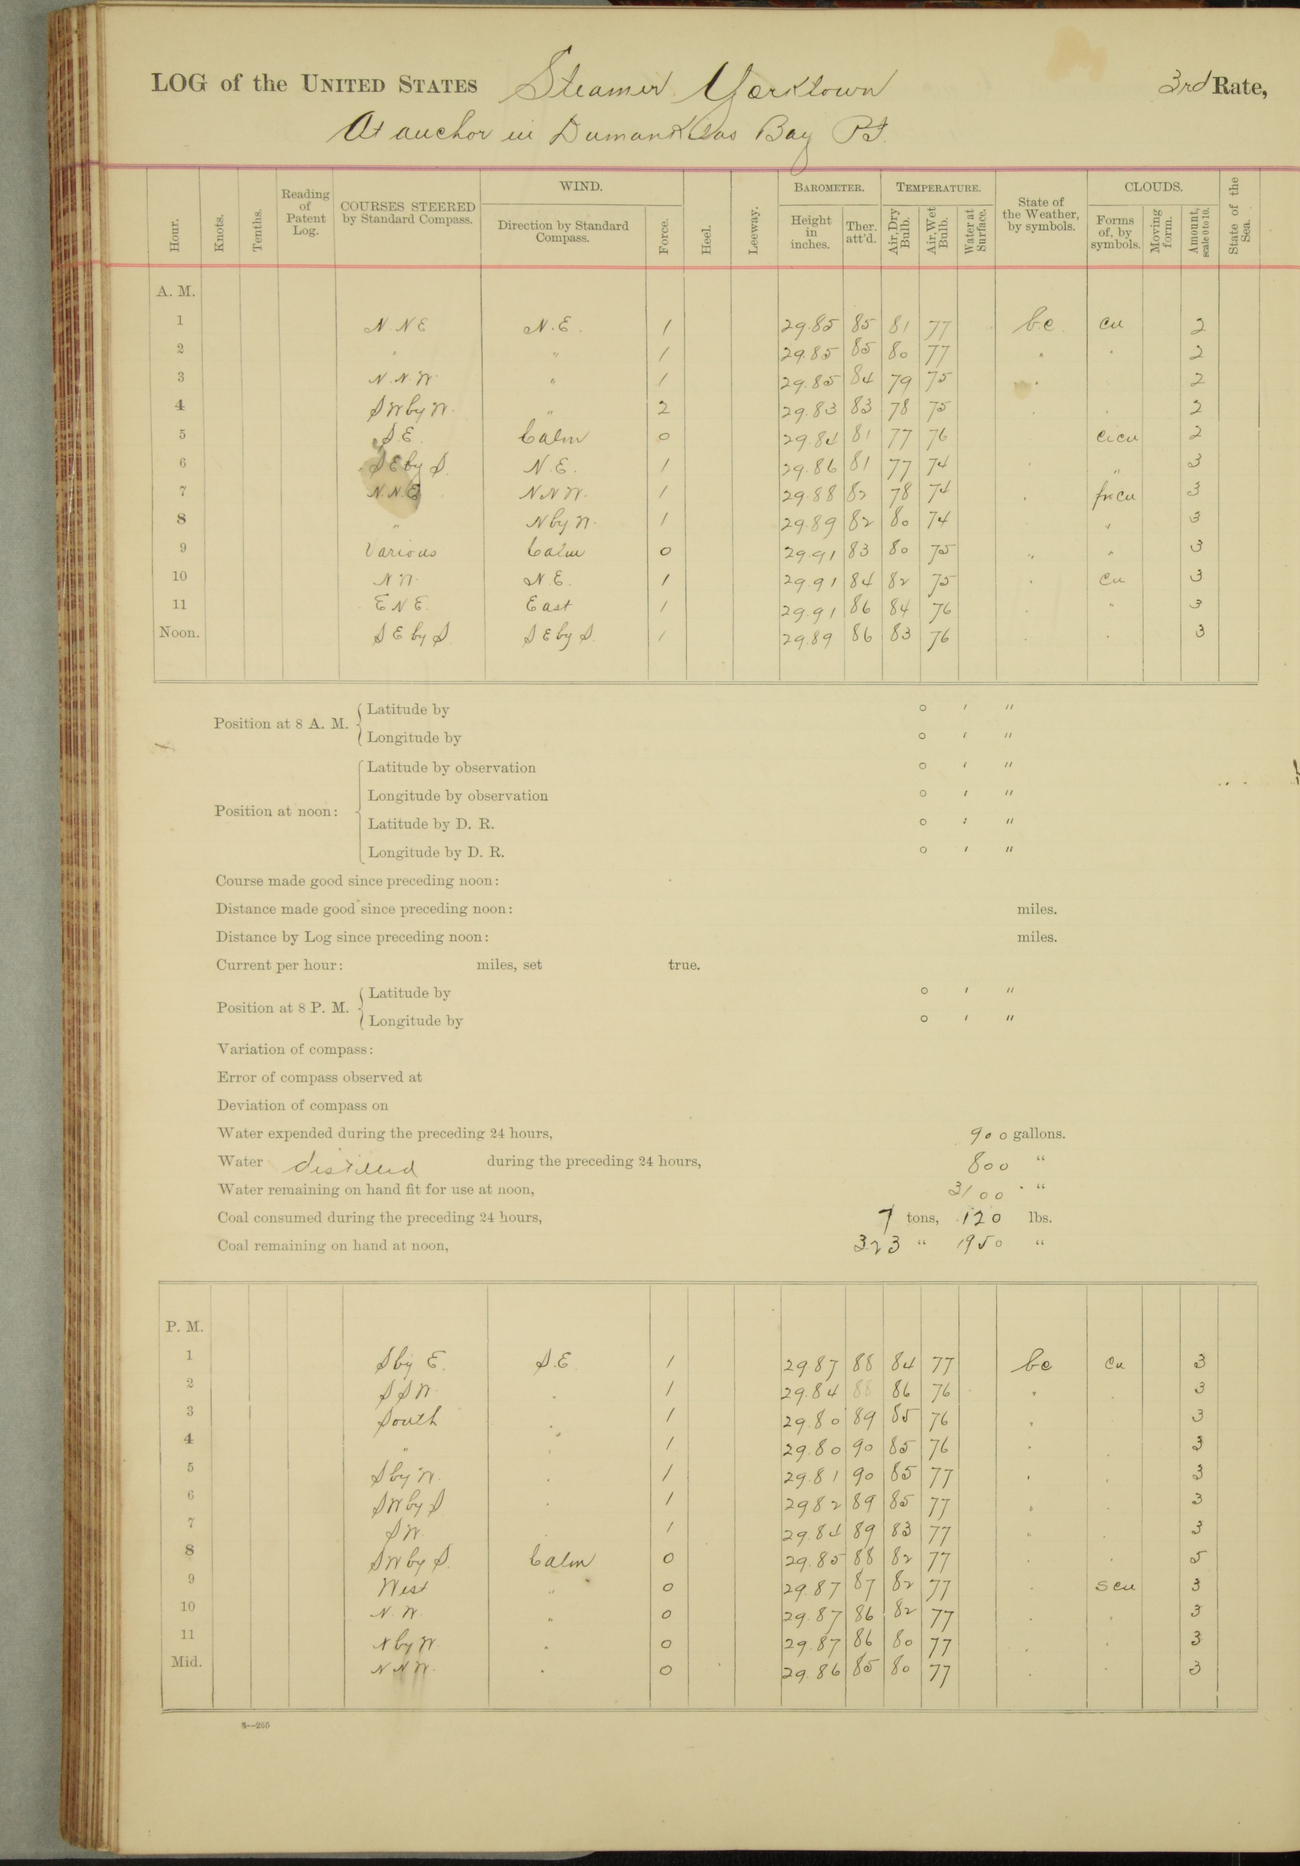 LOG of the UNITED STATES Steamer Yorktown 3rd Rate,
At anchor in Dumankilas Bay P.I.
Hour. Knots. Tenths. Reading of Patent Log. COURSES STEERED by Standard Compass. WIND. Direction by Standard Compass. Force. Heel. Leeway. BAROMETER. Height in inches. Ther. att'd. TEMPERATURE. Air, Dry Bulb. Air, Wet Bulb. Water at Surface. State of the Weather, by symbols. CLOUDS. Forms of, by symbols. Moving form. Amount, scale 0 to 10. State of the Sea.
A. M.
1 N NE N.E. 1 29.85 85 81 77 b.c. cu 2
2 " " 1 29.85 85 80 77 " " 2
3 N.N.W. " 1 29.85 84 79 75 " 2
4 SW by W. " 2 29.83 83 78 75 . . 2
5 S.E. Calm 0 29.84 81 77 76 cicu 2
6 SE by S. N.E. 1 29.86 81 77 74 . " 3
7 N.N.E NNW. 1 29.88 82 78 74 . frcu 3
8 " N by W. 1 29.89 82 80 74 " 3
9 Various Calm 0 29.91 83 80 75 " " 3
10 NW. N.E. 1 29.91 84 82 75 . cu 3
11 ENE. East 1 29.91 86 84 76 . " 3
Noon. SE by S. SE by S. 1 29.89 86 83 76 . . 3
Position at 8 A. M. Latitude by ° ′ ″
Longitude by ° ′ ″
Position at noon: Latitude by observation ° ′ ″
Longitude by observation ° ′ ″
Latitude by D. R. ° ′ ″
Longitude by D. R. ° ′ ″
Course made good since preceding noon:
Distance made good since preceding noon: miles.
Distance by Log since preceding noon: miles.
Current per hour: miles, set true.
Position at 8 P. M. Latitude by ° ′ ″
Longitude by ° ′ ″
Variation of compass:
Error of compass observed at
Deviation of compass on
Water expended during the preceding 24 hours, 900 gallons.
Water distilled during the preceding 24 hours, 800 "
Water remaining on hand fit for use at noon, 3100 "
Coal consumed during the preceding 24 hours, 7 tons, 120 lbs.
Coal remaining on hand at noon, 323 " 1950 "
P. M.
1 S by E. S.E 1 29.87 88 84 77 bc cu 3
2 SSW. . 1 29.84 88 86 76 " . 3
3 South . 1 29.80 89 85 76 " 3
4 " " 1 29.80 90 85 76 . . 3
5 S by W. . 1 29.81 90 85 77 . . 3
6 SW by S . 1 29.82 89 85 77 " . 3
7 SW. . 1 29.84 89 83 77 " . 3
8 SW by S. Calm 0 29.85 88 82 77 . . 5
9 West " 0 29.87 87 82 77 . scu 3
10 N.W. " 0 29.87 86 82 77 . . 3
11 N by W. . 0 29.87 86 80 77 . . 3
Mid. NNW. . 0 29.86 85 80 77 . . 3